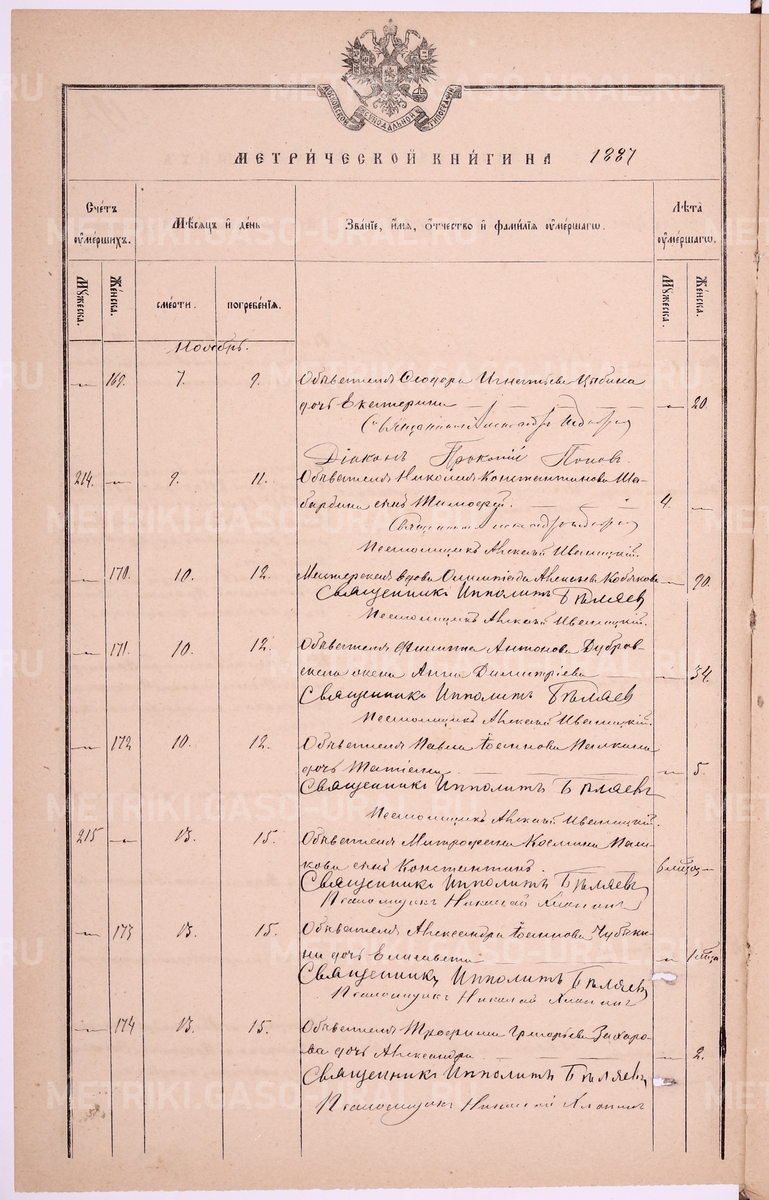 МОСКОВСКОЙ СѴНОДАЛЬНОЙ ТИПОГРАФІИ
МЕТРИ́ЧЕСКОЙ КНИ́ГИ НА 1887
Сче́тъ ᲂу҆ме́ршихъ.
Мѣ́сяцъ и҆ де́нь
Зва́нїе, и҆́мя, ѻ҆́тчество и҆ фамилїѧ ᲂу҆ме́ршагѡ.
Лѣ́та ᲂу҆ме́ршагѡ.
Мꙋ́жеска.
Же́нска.
сме́рти.
погребе́нїѧ.
Мꙋ́жеска.
Же́нска.
Ноябрь.
169. 7. 9. Обывателя Ѳеодора Игнатьева Цыбина
дочь Екатерина 20.
Священникъ
Діаконъ Прокопій Поповъ
214. 9. 11. Обывателя Николая Константинова Ша-
барина сынъ Тимоѳей. 4
Священникъ
Псаломщикъ Алексѣй Иваницкій.
170. 10. 12. Мастерская вдова Олимпіада Алексѣева Кобякова 90.
Священникъ Ипполитъ Бѣляевъ
Псаломщикъ Алексѣй Иваницкій.
171. 10. 12. Обывателя Филиппа Антонова Дубров-
скаго жена Анна Димитріева 34.
Священникъ Ипполитъ Бѣляевъ
Псаломщикъ Алексѣй Иваницкій.
172 10. 12. Обывателя Павла Іоаннова Палкина
дочь Татіана 5.
Священникъ Ипполитъ Бѣляевъ
Псаломщикъ Алексѣй Иваницкій.
215 13. 15. Обывателя Митрофана Космина Пал-
кова сынъ Константинъ. 6 мѣсяц
Священникъ Ипполитъ Бѣляевъ
Псаломщикъ Николай
173 13. 15. Обывателя Александра Іоаннова Чубаки-
на дочь Елисавета 1 мѣсяц
Священникъ Ипполитъ Бѣляевъ
Псаломщикъ Николай
174 13. 15. Обывателя Трофима Григорьева Захаро-
ва дочь Александра 2.
Священникъ Ипполитъ Бѣляевъ
Псаломщикъ Николай
METRIKI.GASO-URAL.RU